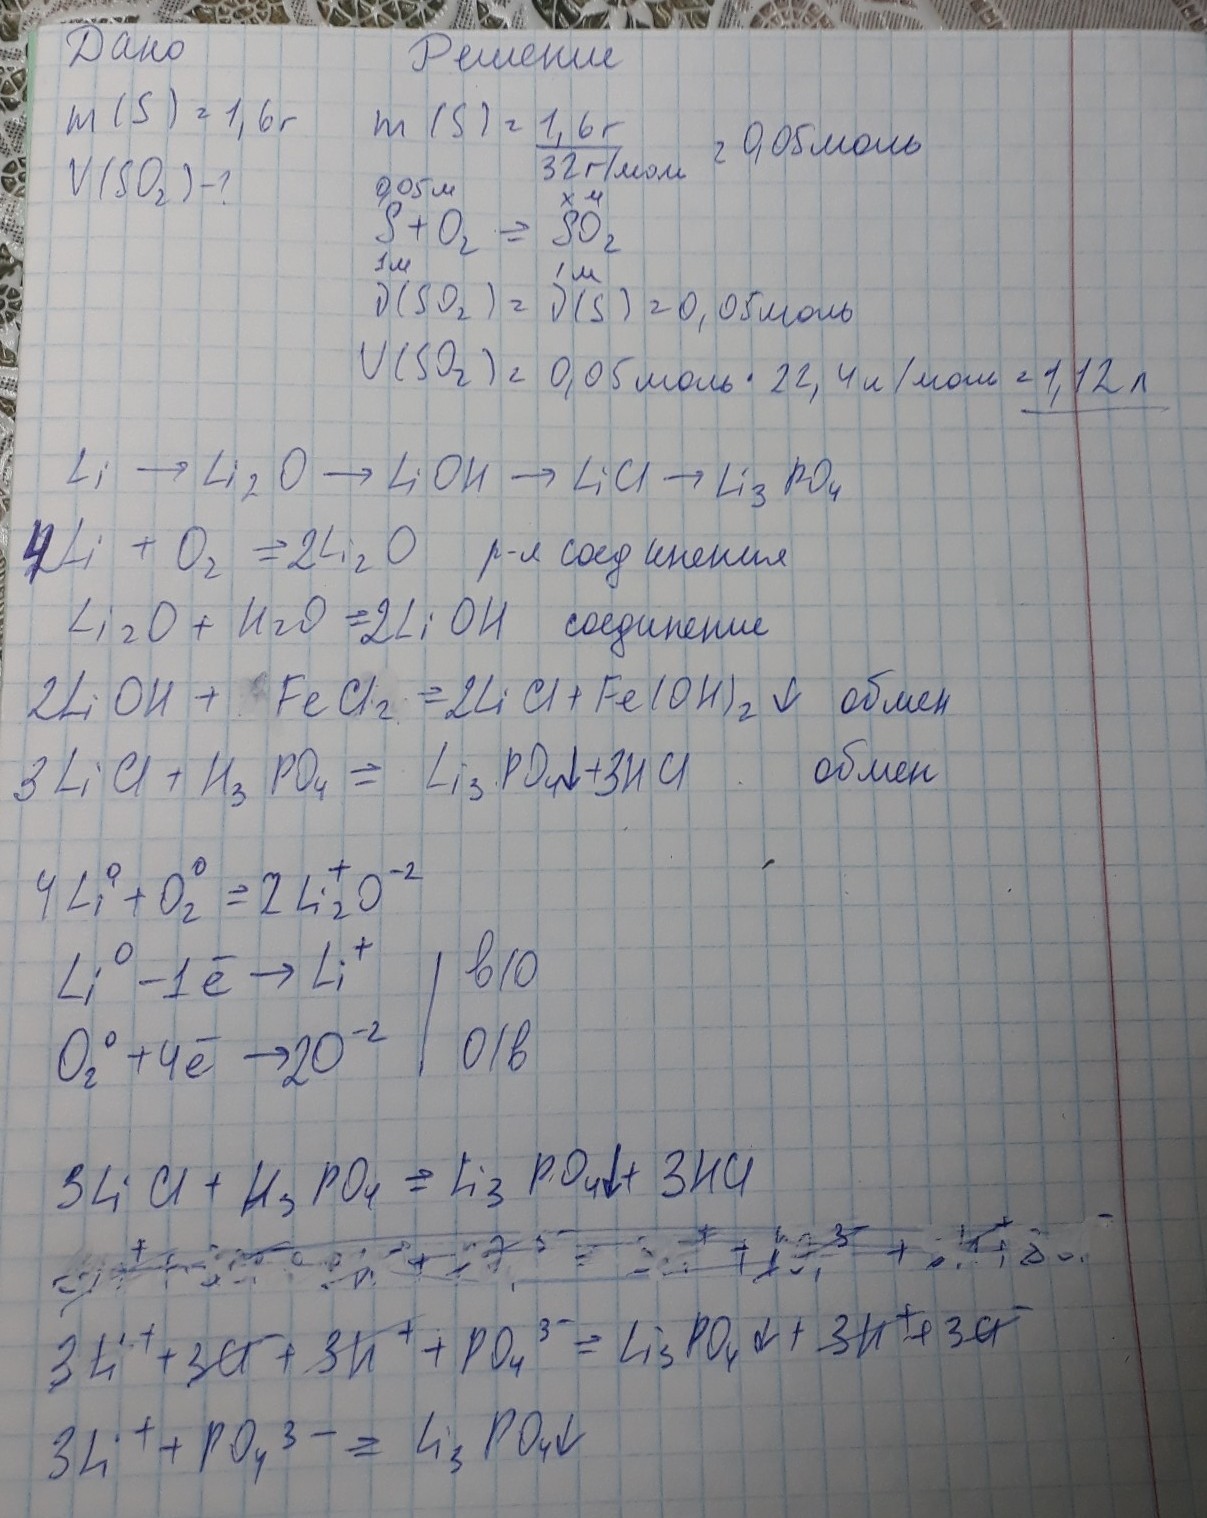 Дано Решение
m(S) = 1,6г m(S) = 1,6г / 32г/мом = 0,05моль
V(SO₂) - ?
0,05м x м
S + O₂ = SO₂
1м 1м
ν(SO₂) = ν(S) = 0,05моль
V(SO₂) = 0,05моль · 22,4л/моль = 1,12л
Li → Li₂O → LiOH → LiCl → Li₃PO₄
4Li + O₂ = 2Li₂O р-я соединения
Li₂O + H₂O = 2LiOH соединение
2LiOH + FeCl₂ = 2LiCl + Fe(OH)₂↓ обмен
3LiCl + H₃PO₄ = Li₃PO₄↓ + 3HCl обмен
4Li⁰ + O₂⁰ = 2Li₂⁺O⁻²
Li⁰ - 1ē → Li⁺ | в/О
O₂⁰ + 4ē → 2O⁻² | О/в
3LiCl + H₃PO₄ = Li₃PO₄↓ + 3HCl
3Li⁺ + 3Cl⁻ + 3H⁺ + PO₄³⁻ = Li₃PO₄↓ + 3H⁺ + 3Cl⁻
3Li⁺ + PO₄³⁻ = Li₃PO₄↓